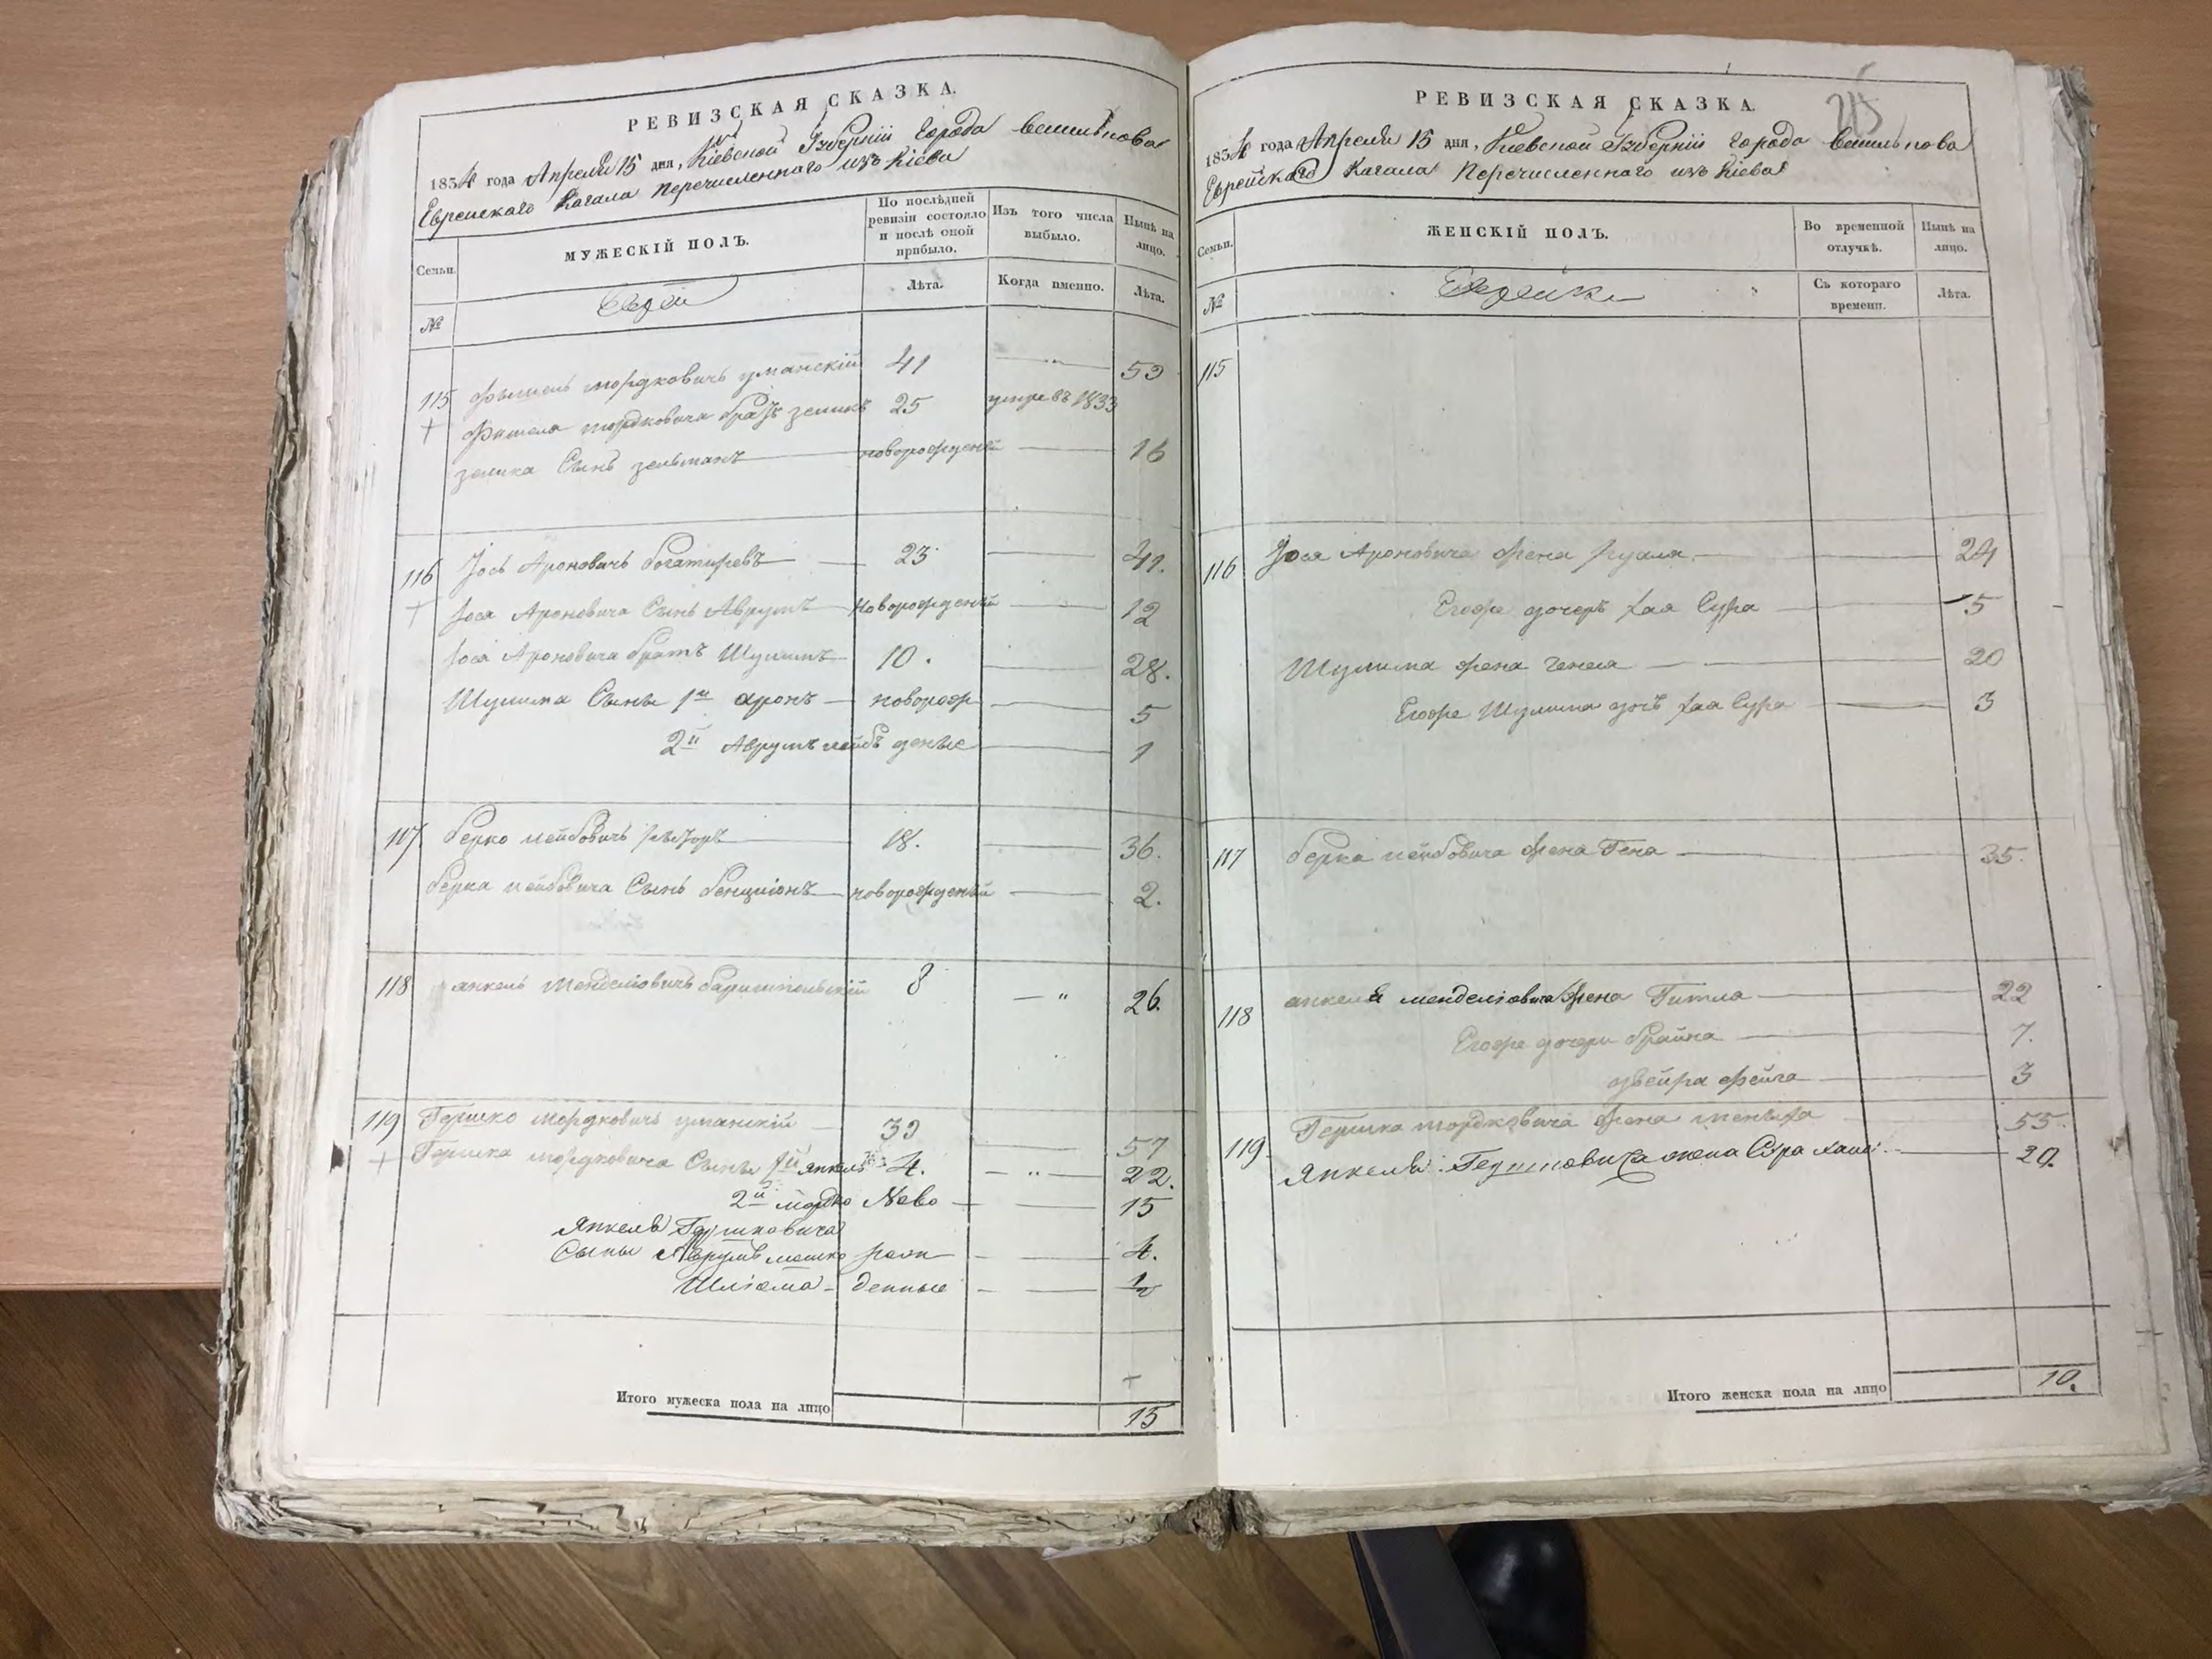 РЕВИЗСКАЯ СКАЗКА.
1834 года Апреля 15 дня, Кіевской Губерніи Города Василькова
Еврейскаго Кагала Перечисленнаго изъ Кіева
Семьи.
МУЖЕСКІЙ ПОЛЪ.
По послѣдней ревизіи состояло и послѣ оной прибыло.
Изъ того числа выбыло.
Нынѣ на лицо.
№
Евреи
Лѣта.
Когда именно.
Лѣта.
115 Фишель мордковичъ уманскій 41 — " — 53
Фишеля мордковича братъ зеликъ 25 умре въ 1833
зелика Сынъ зельманъ новорожденъй — 16
116 Іось Ароновичъ богатиревъ — 23 — 41.
Іося Ароновича Сынъ Аврумъ новорожденъй — 12
Іося Ароновича братъ Шулимъ 10. — 28.
Шулима Сыны 1й аронъ — новорож — 5
2й Аврумъ лейбъ деные — 1
117 берко лейбовичъ — 18. — 36.
берка лейбовича Сынъ бенціонъ — новорожденъй — 2.
118 янкель менделіовичъ баришпольскій 8 — " 26.
119 Гершко мордковичъ уманскій — 39 — 57
Гершка мордковича Сыны 1й янкель 4. — " — 22.
2й мордко Ново — 15
янкеля Гершковича
Сыны Аврумъ мошко рож — 4.
Шліома — денные — 1/2
Итого мужеска пола на лицо 15
215
РЕВИЗСКАЯ СКАЗКА.
1834 года Апреля 15 дня, Кіевской Губерніи города Василькова
Еврейскаго Кагала Перечисленнаго изъ Кіева
Семьи.
ЖЕНСКІЙ ПОЛЪ.
Во временной отлучкѣ.
Нынѣ на лицо.
№
Еврейки
Съ котораго времени.
Лѣта.
115
116 Іося Ароновича жена — 24
Егоже дочерь хая Сура — 5
Шулима жена Генея — 20
Егоже Шулима дочъ хая Сура — 3
117 берка лейбовича жена Гена — 35.
118 янкеля менделіовича жена Гитла — 22
Егоже дочери брайна — 7.
двейра фейга — 3
119 Гершка мордковича жена — 55.
Янкеля Гершковича жена Сура хана — 20.
Итого женска пола на лицо 10.